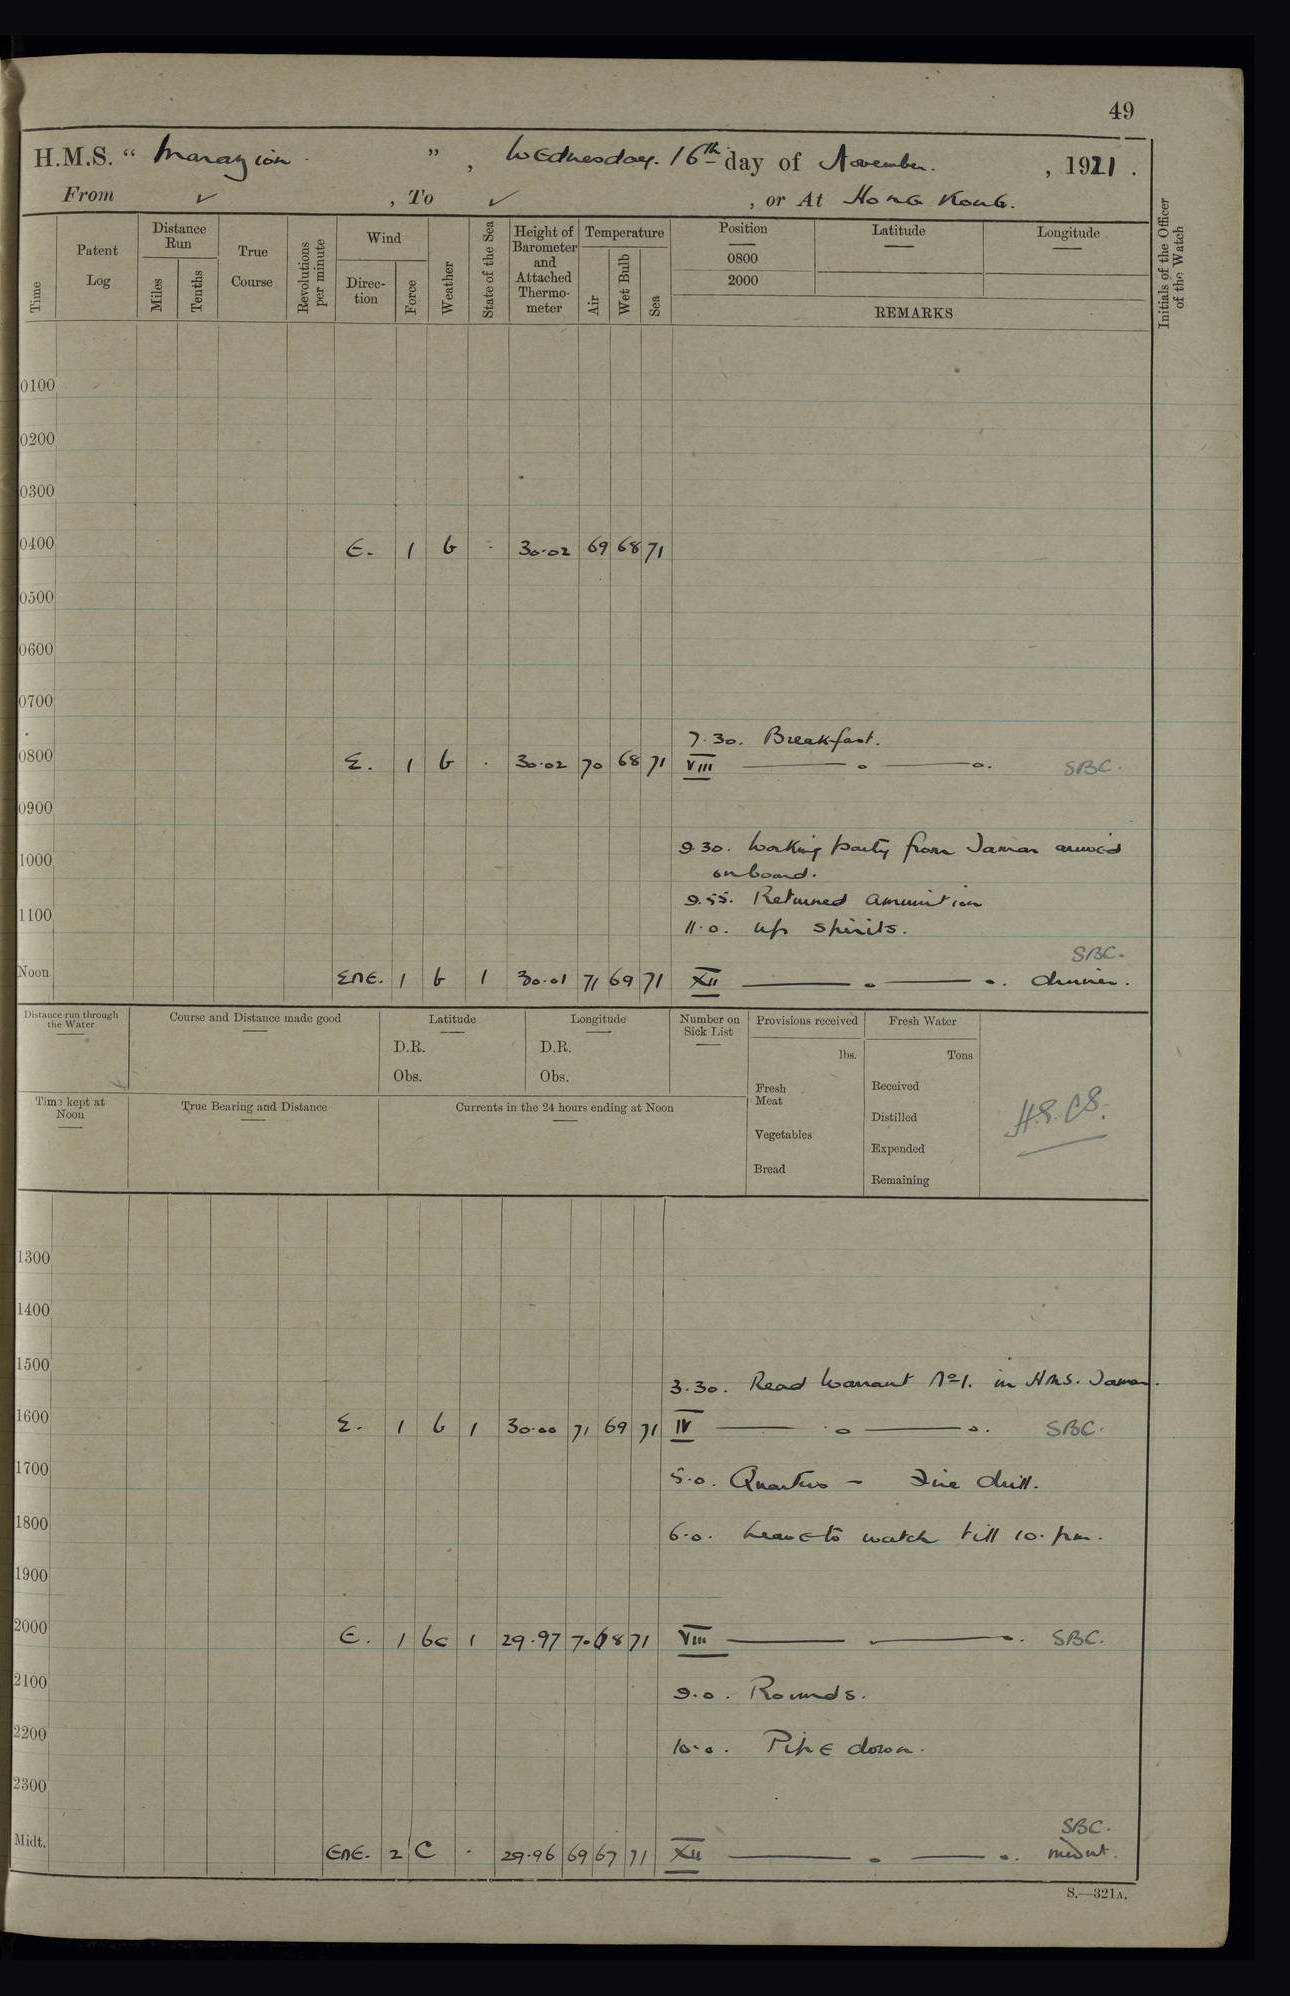 49
H.M.S. “ Marazion ” , Wednesday. 16th day of November. , 1921 .
From ✓ , To ✓ , or At Hong Kong.
Time
Patent Log
Distance Run
Miles
Tenths
True Course
Revolutions per minute
Wind
Direction
Force
Weather
State of the Sea
Height of Barometer and Attached Thermometer
Temperature
Air
Wet Bulb
Sea
Position
0800
2000
Latitude
Longitude
REMARKS
Initials of the Officer of the Watch
0100
0200
0300
0400 E. 1 b . 30.02 69 68 71
0500
0600
0700
7.30. Breakfast.
0800 E. 1 b . 30.02 70 68 71 VIII ——— o ——— o. SBC.
0900
9.30. Working party from Tamar arrived
1000
onboard.
9.55. Returned amunition
1100
11.0. up spirits.
SBC.
Noon ENE. 1 b 1 30.01 71 69 71 XII ——— o ——— o. dinner.
Distance run through the Water
Course and Distance made good
Latitude
D.R.
Obs.
Longitude
D.R.
Obs.
Number on Sick List
Provisions received
lbs.
Fresh Meat
Vegetables
Bread
Fresh Water
Tons
Received
Distilled
Expended
Remaining
Time kept at Noon
True Bearing and Distance
Currents in the 24 hours ending at Noon
1300
1400
1500
3.30. Read Warrant No1. in HMS. Tamar.
1600 E. 1 b 1 30.00 71 69 71 IV ——— o ——— o. SBC.
1700
5.0. Quarters – Fire drill.
1800
6.0. Leave to watch till 10. pm.
1900
2000 E. 1 bc 1 29.97 70 68 71 VIII ——— ——— . SBC.
2100
9.0. Rounds.
2200
10.0. Pipe down.
2300
SBC.
Midt. ENE. 2 C . 29.96 69 67 71 XII ——— o ——— o.
S.—321A.